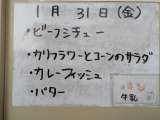 1月 31日(金)
・ビーフシチュー
・カリフラワーとコーンのサラダ
・カレーフィッシュ
・バター
牛乳